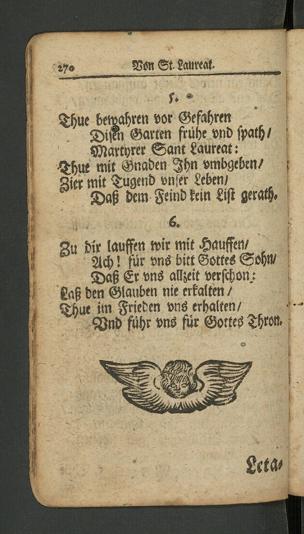 270 Von St. Laureat.
5.
Thue bewahren vor Gefahren
Disen Garten frühe vnd spath/
Martyrer Sant Laureat:
Thue mit Gnaden Ihn vmbgeben/
Zier mit Tugend vnser Leben/
Daß dem Feind kein List gerath.
6.
Zu dir lauffen wir mit Hauffen/
Ach! für vns bitt Gottes Sohn/
Daß Er vns allzeit verschon:
Laß den Glauben nie erkalten/
Thue im Frieden vns erhalten/
Vnd führ vns für Gottes Thron.
Leta-